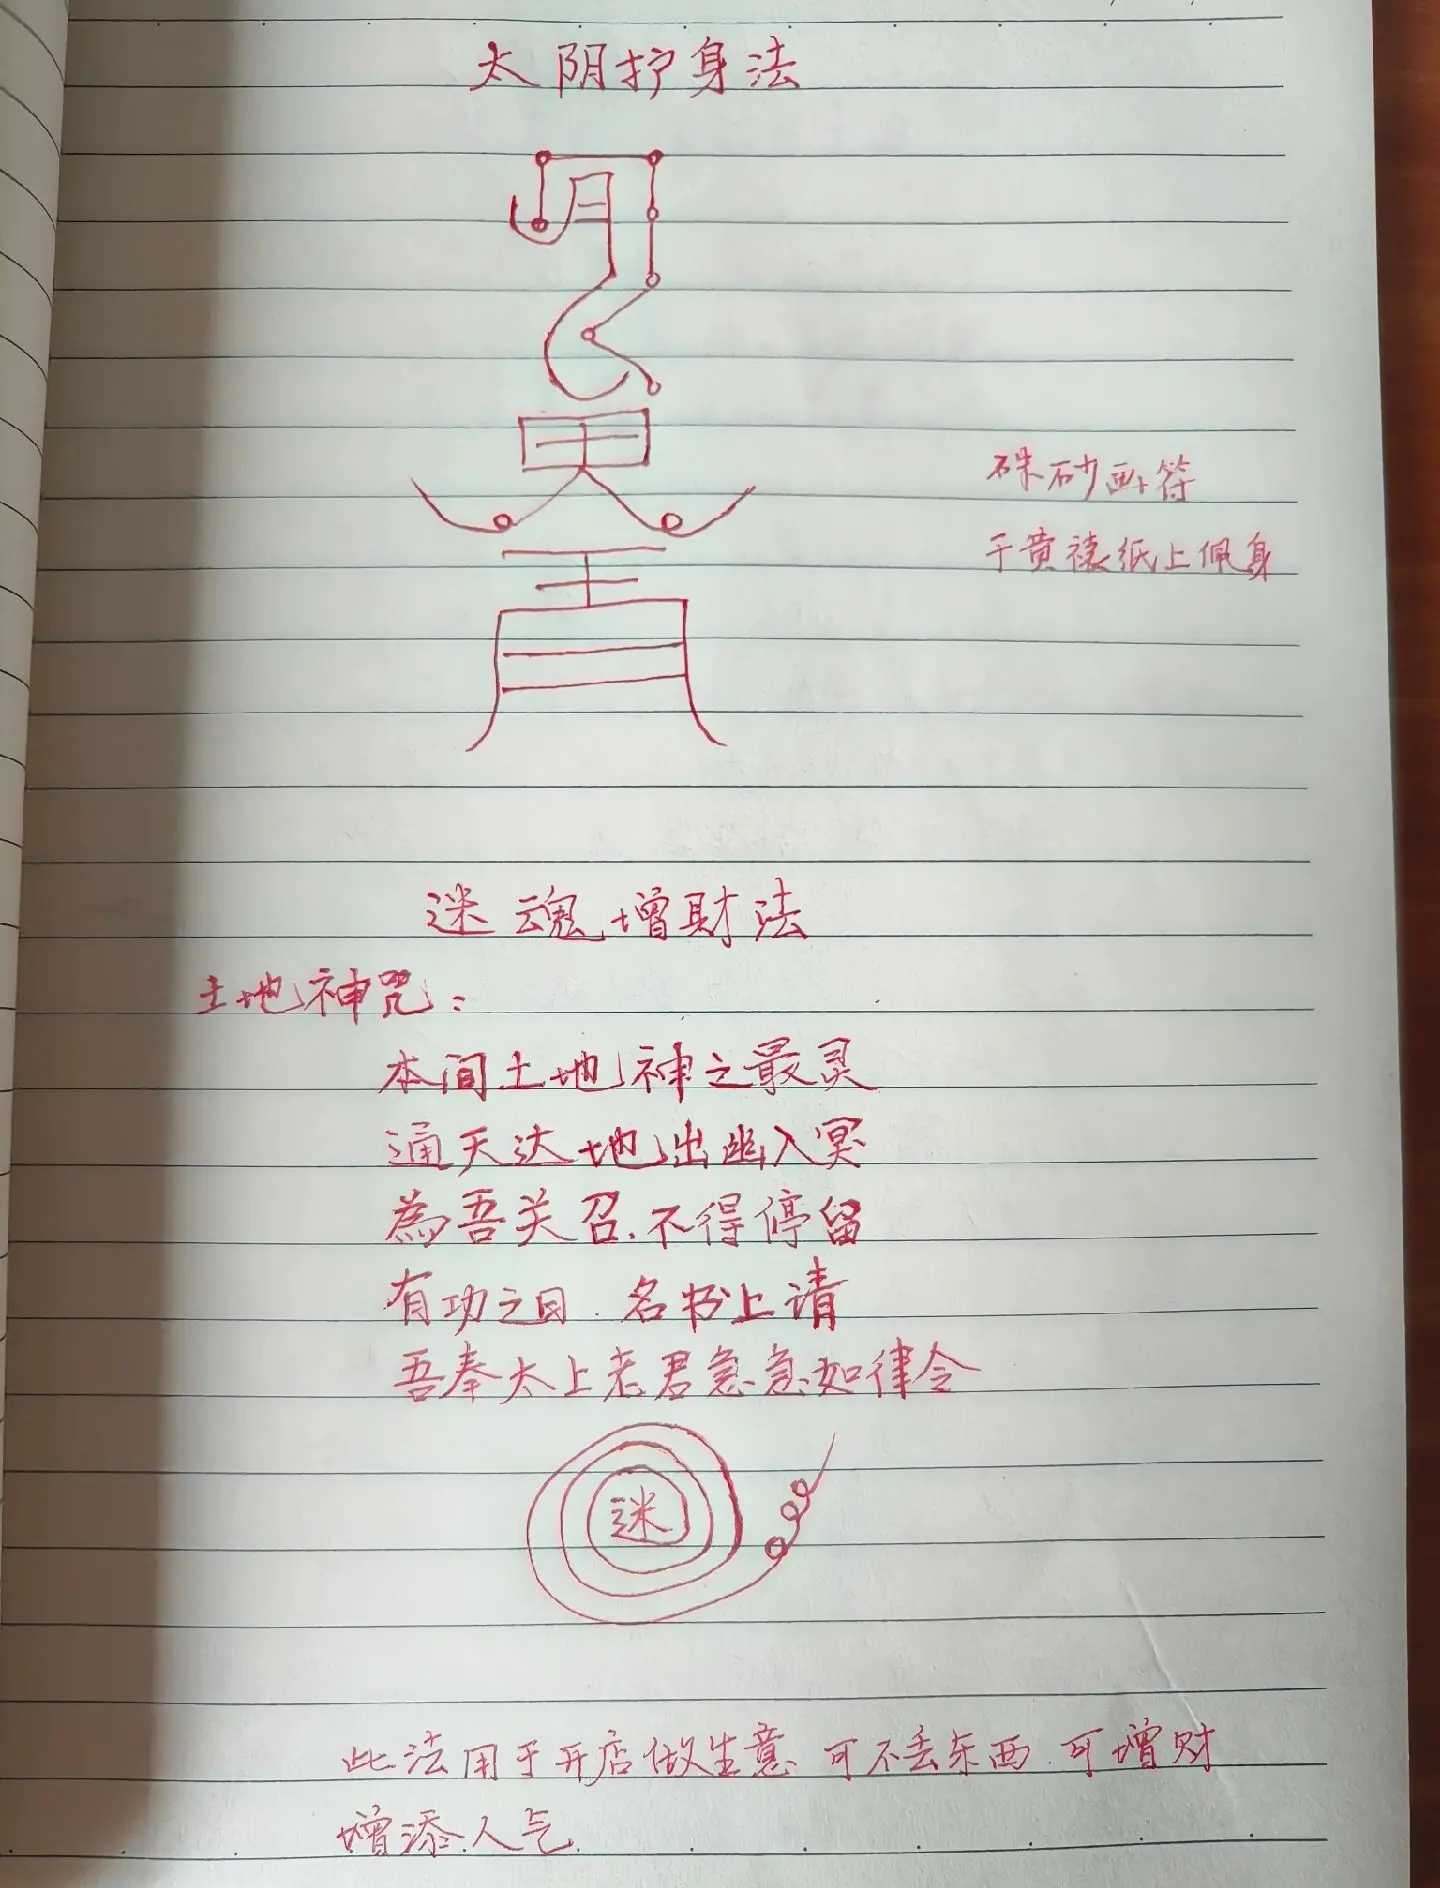 太阴护身法
硃砂画符
于黄裱纸上佩身
迷魂增财法
土地神咒：
本间土地神之最灵
通天达地出幽入冥
為吾关召.不得停留
有功之日.名书上请
吾奉太上老君急急如律令
迷
此法用于开店做生意.可不丢东西.可增财
增添人气.